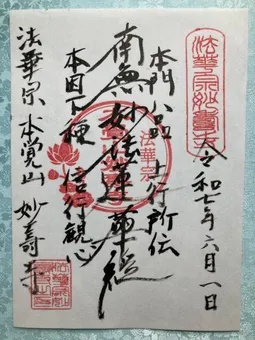 法華宗妙壽寺
令和七年六月一日
本門八品 上行所伝
南無妙法蓮華経
本因下種 信行観心
法華宗 本覚山 妙寿寺
法華宗